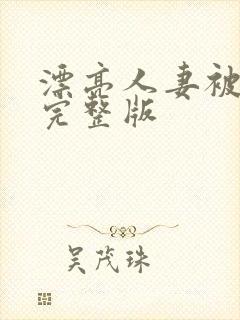 漂亮人妻被
完整版
吴茂珠